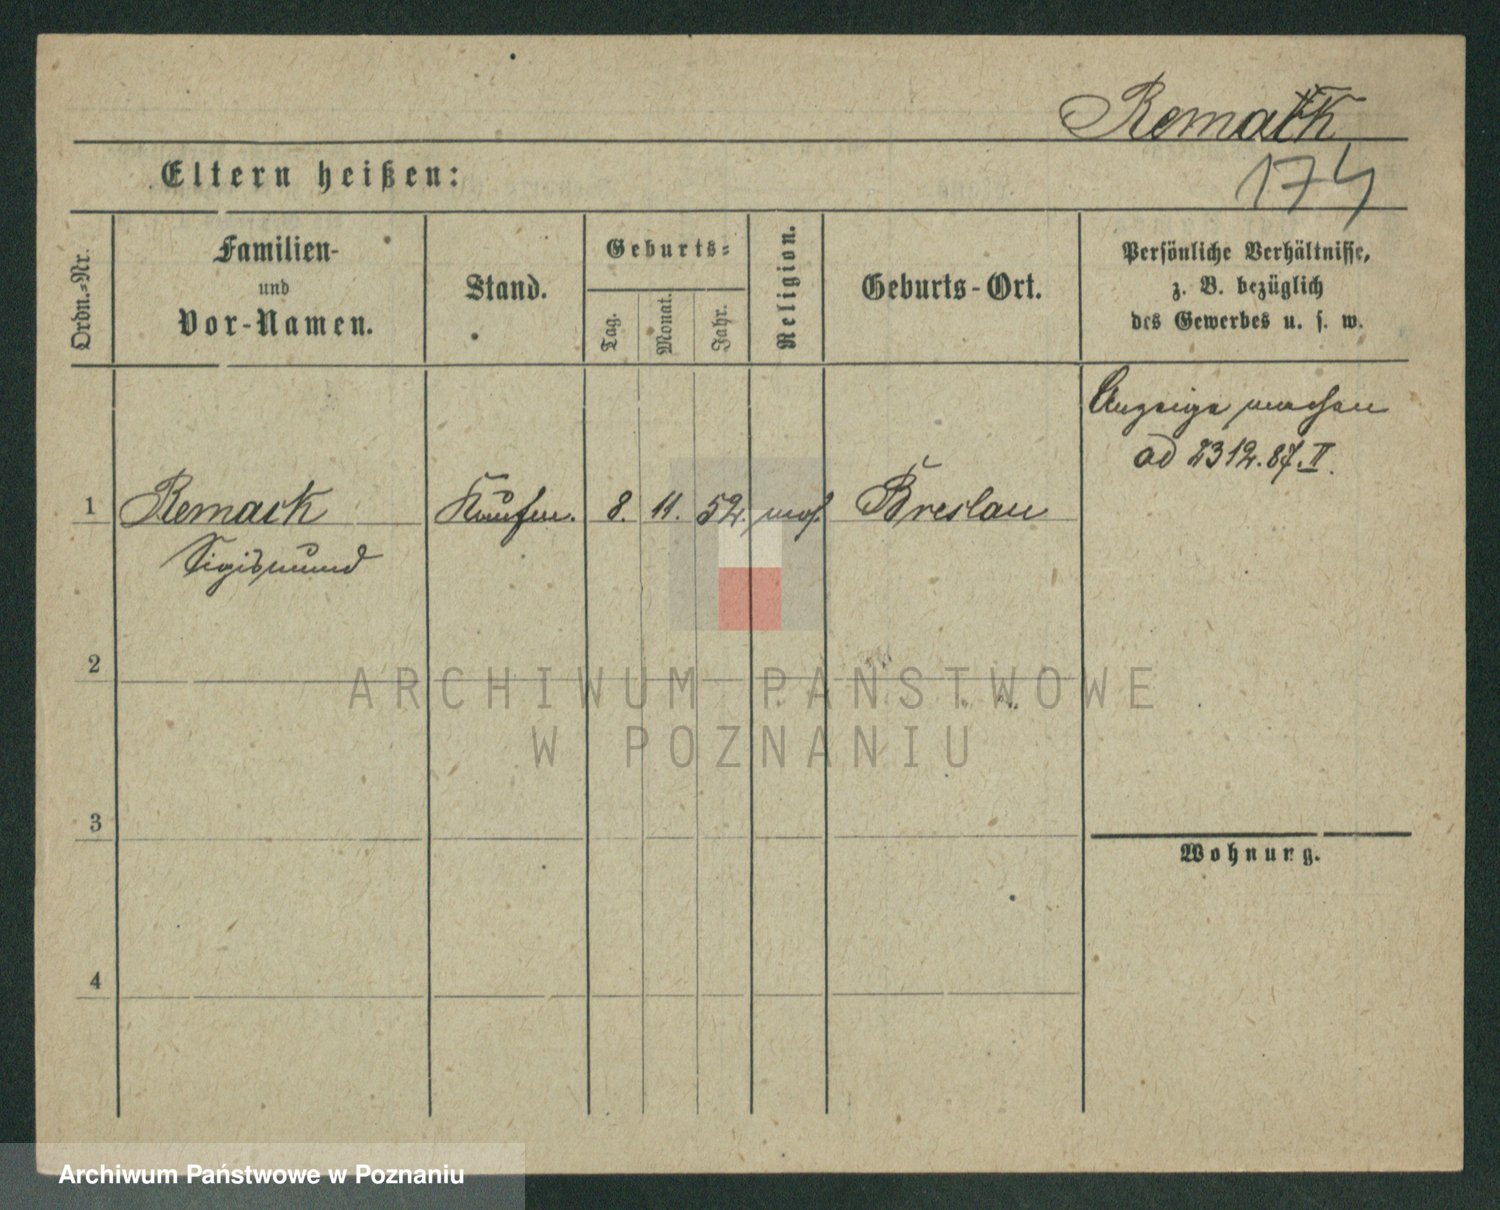 Remak
174
Eltern heißen:
Ordn.-Nr.
Familien-
und
Vor-Namen.
Stand.
Geburts-
Tag.
Monat.
Jahr.
Religion.
Geburts-Ort.
Persönliche Verhältnisse,
z. B. bezüglich
des Gewerbes u. s. w.
Anzeige machen
ad 2312.87.II.
1 Remack Kaufm. 8. 11. 52. mos. Breslau
Sigismund
2
3
4
Wohnung.
ARCHIWUM PAŃSTWOWE
W POZNANIU
Archiwum Państwowe w Poznaniu